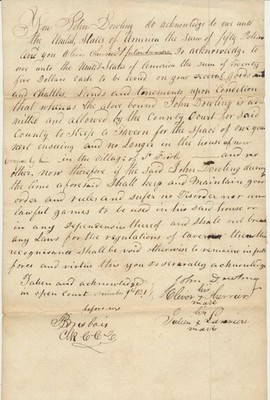 You John Dowling do acknowledge to owe unto
the United States of America the Sum of fifty Dollars
And you Oliver & Julien do acknowledge to
owe unto the United States of America the sum of twenty
five Dollars each to be levied on your several goods and
and Chattles Lands and tenements upon Condition
that whereas the above bound John Dowling is ad
mitted and allowed by the County Court for said
County to Keep a Tavern for the space of one year
next ensuing and no Longer in the house of
in the village of and no
other, now therefore if the said John Dowling during
the time aforesaid Shall keep and Maintain good
order and rules and suffer no Disorder nor un
lawful games to be used in his said house or
in any Dependencies thereof and shall not break
any Laws for the regulations of taverns then this
recognizance Shall be void otherwise to remain in its full
force and virtue this you do severally acknowledge
Taken and acknowledged
in open Court 1821
before me
J Brisbois
Clk C C C
John Dowling
his
Oliver X
mark
his
Julien X
mark